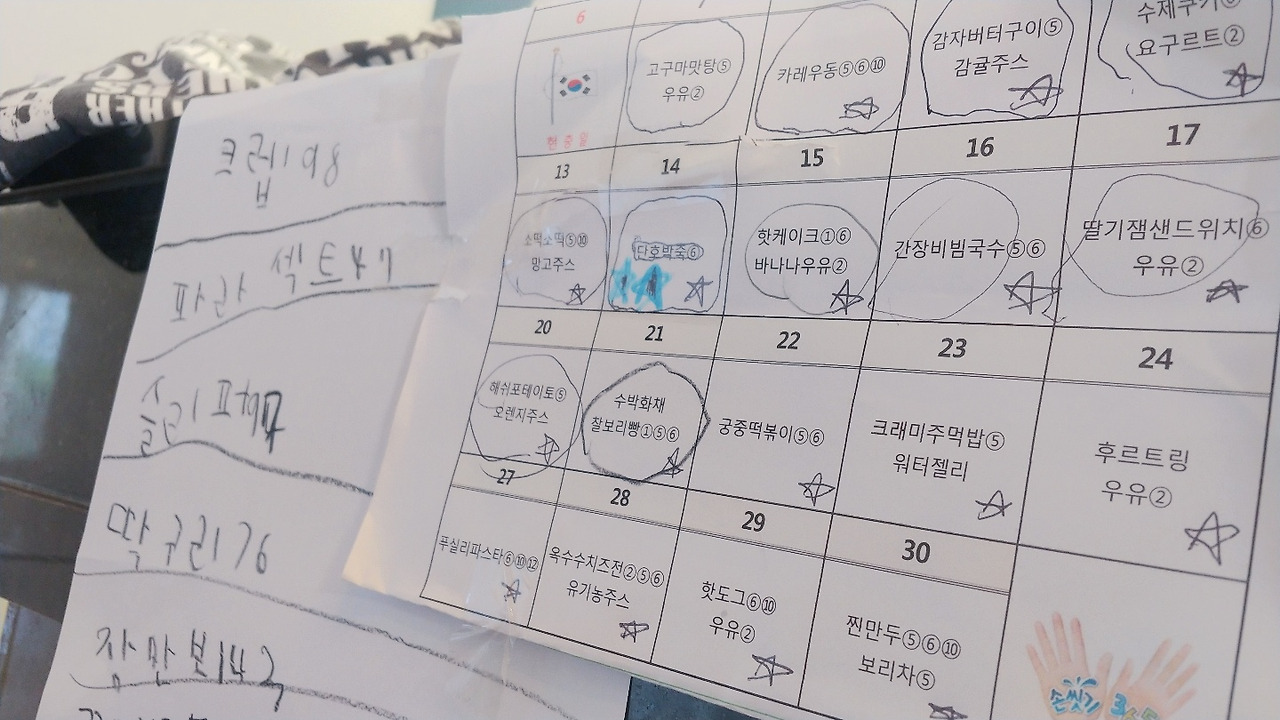 크랩198
파라섹트47
슬리퍼97
딱구리76
잠만보143
6
현충일
고구마맛탕⑤
우유②
카레우동⑤⑥⑩
감자버터구이⑤
감귤주스
수제쿠키⑥
요구르트②
13
14
15
16
17
소떡소떡⑤⑩
망고주스
단호박죽⑥
핫케이크①⑥
바나나우유②
간장비빔국수⑤⑥
딸기잼샌드위치⑥
우유②
20
21
22
23
24
해쉬포테이토⑤
오렌지주스
수박화채
찰보리빵①⑤⑥
궁중떡볶이⑤⑥
크래미주먹밥⑤
워터젤리
후르트링
우유②
27
28
29
30
푸실리파스타⑥⑩⑫
옥수수치즈전②⑤⑥
유기농주스
핫도그⑥⑩
우유②
찐만두⑤⑥⑩
보리차⑤
손씻기